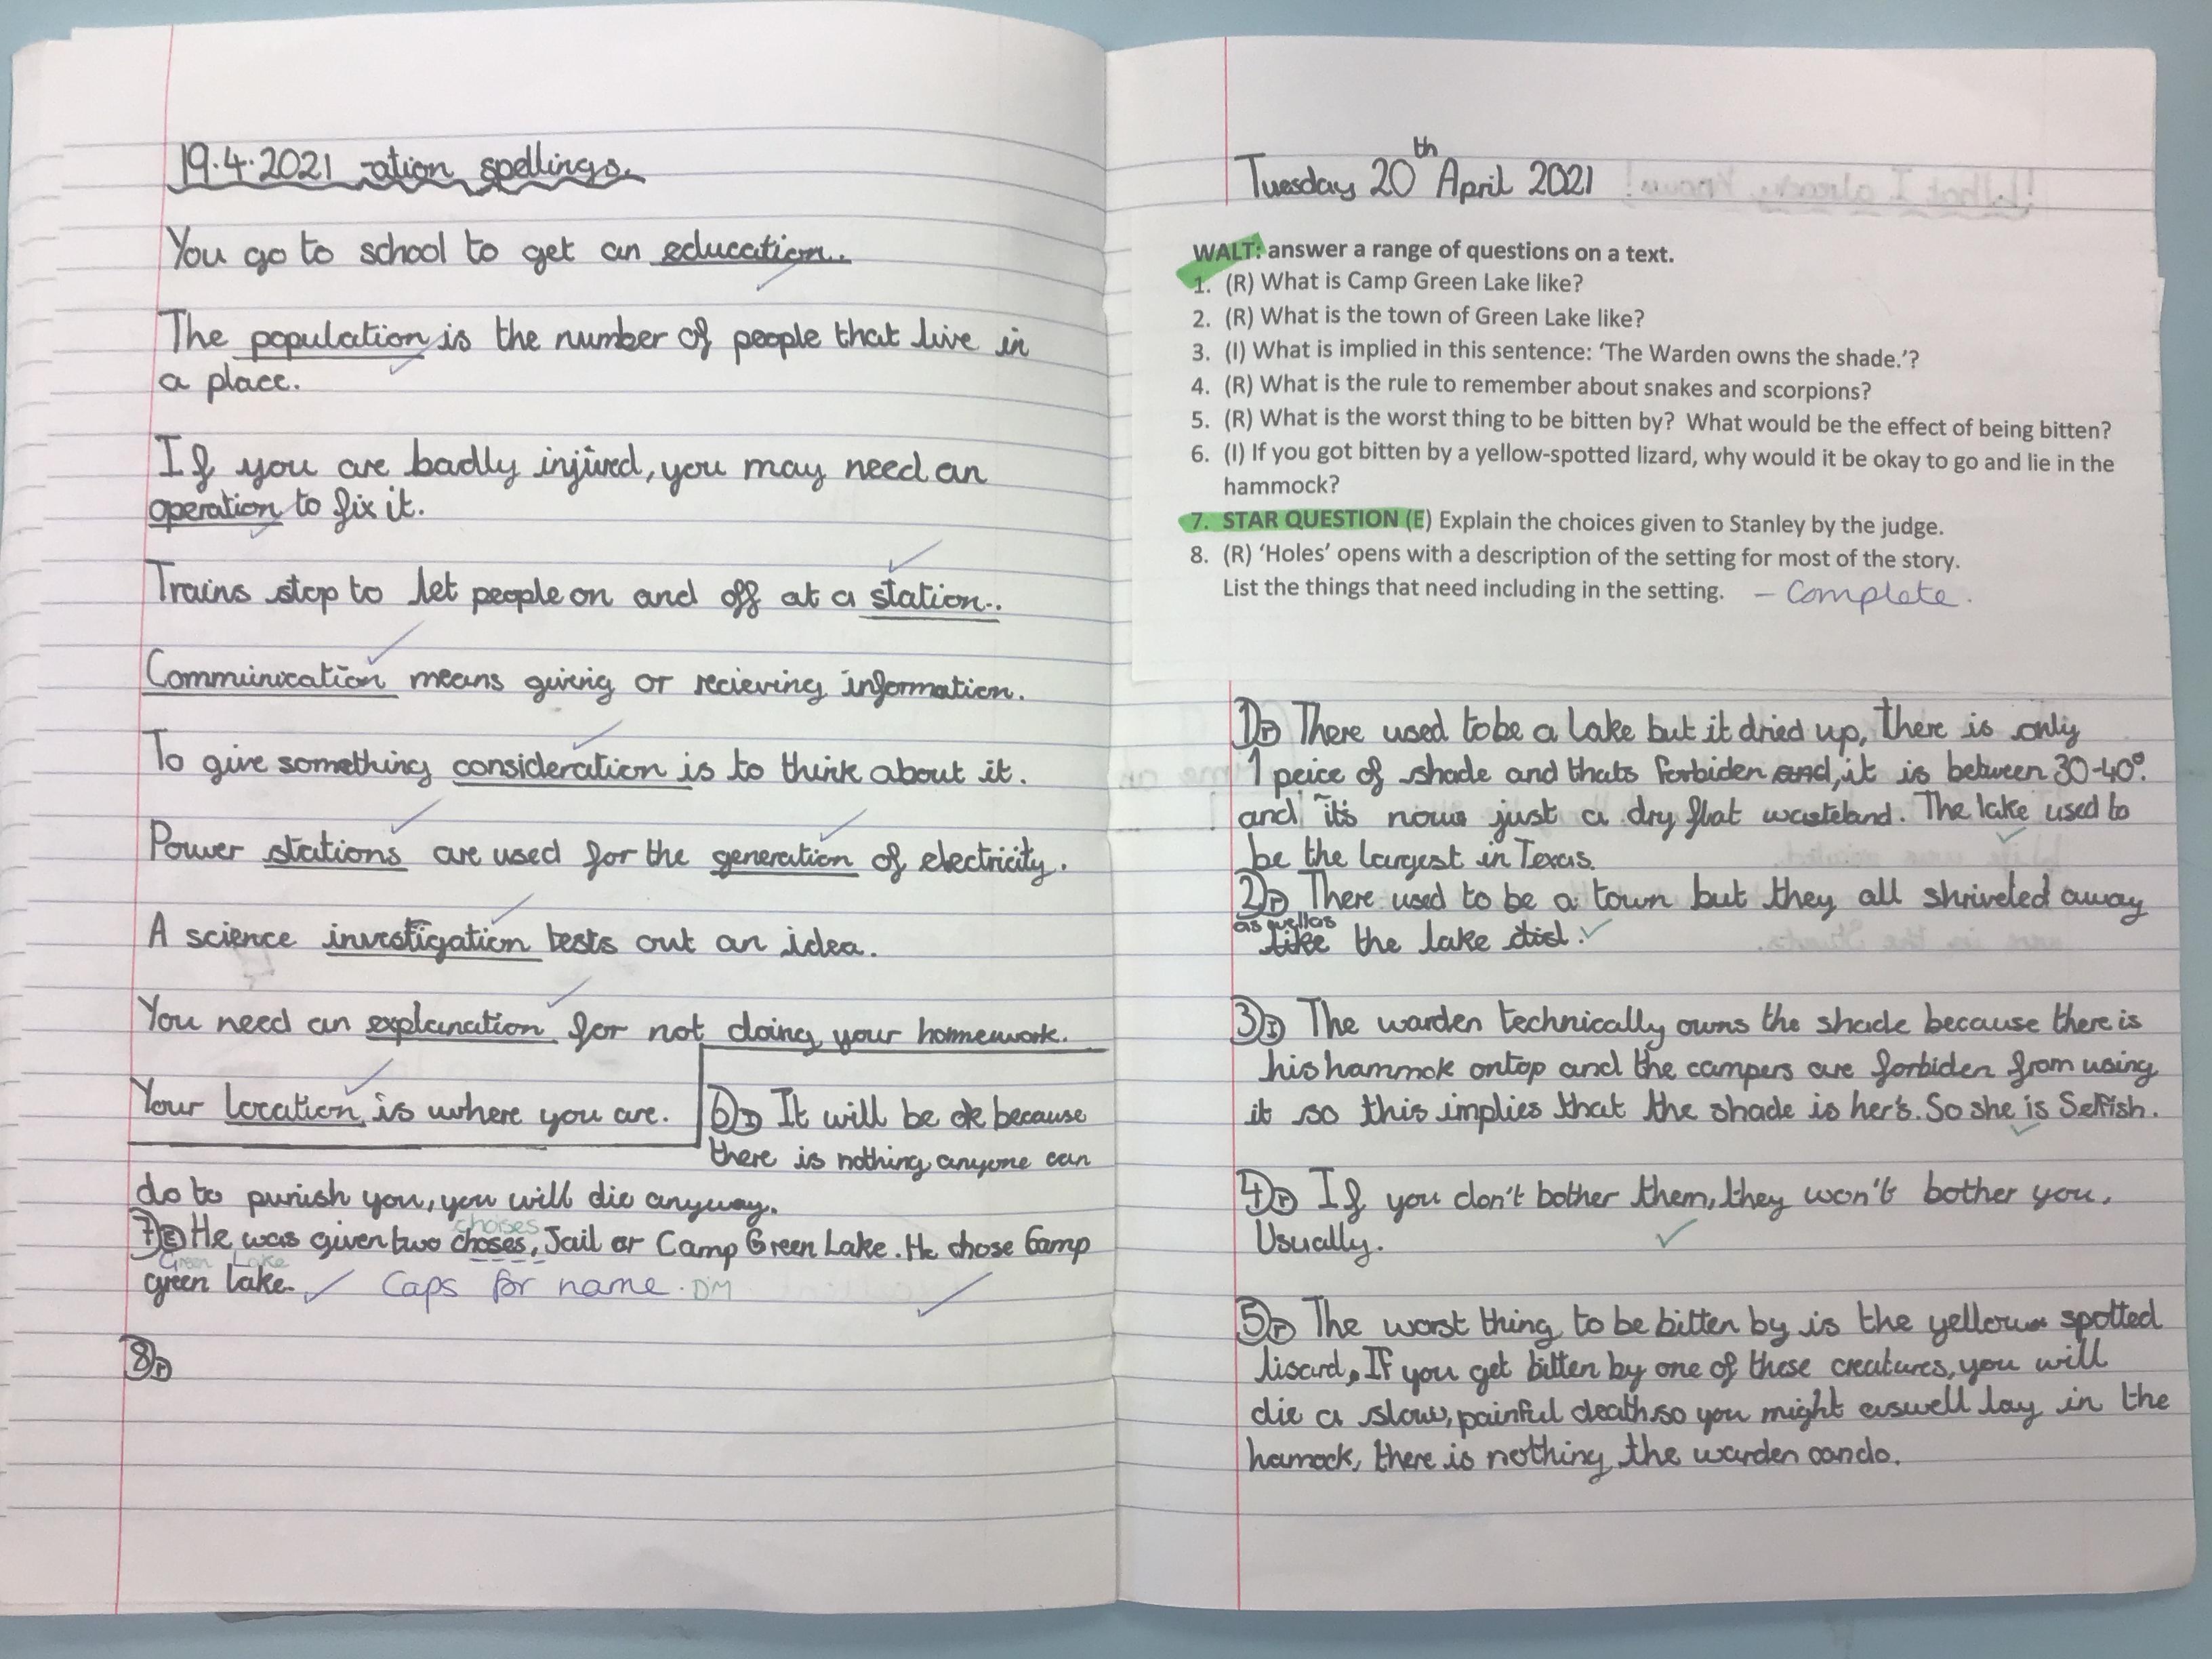 19.4.2021 -ation spellings.
You go to school to get an education.
The population is the number of people that live in
a place.
If you are badly injured, you may need an
operation to fix it.
Trains stop to let people on and off at a station..
Communication means giving or recieving information.
To give something consideration is to think about it.
Power stations are used for the generation of electricity.
A science investigation tests out an idea.
You need an explanation for not doing your homework.
Your location is where you are.
6) I It will be ok because
there is nothing anyone can
do to punish you, you will die anyway.
choises
7) E He was given two choses, Jail or Camp Green Lake. He chose Camp
Green Lake
green lake. Caps for name. DM
8) r
Tuesday 20th April 2021
WALT: answer a range of questions on a text.
1. (R) What is Camp Green Lake like?
2. (R) What is the town of Green Lake like?
3. (I) What is implied in this sentence: ‘The Warden owns the shade.’?
4. (R) What is the rule to remember about snakes and scorpions?
5. (R) What is the worst thing to be bitten by? What would be the effect of being bitten?
6. (I) If you got bitten by a yellow-spotted lizard, why would it be okay to go and lie in the
hammock?
7. STAR QUESTION (E) Explain the choices given to Stanley by the judge.
8. (R) ‘Holes’ opens with a description of the setting for most of the story.
List the things that need including in the setting. - Complete.
1) r There used to be a Lake but it dried up, there is only
1 peice of shade and thats forbiden and, it is between 30-40°.
and it's now just a dry flat wasteland. The lake used to
be the largest in Texas.
2) r There used to be a town but they all shriveled away
as well as
like the lake did.
3) I The warden technically owns the shade because there is
his hammok ontop and the campers are forbiden from using
it so this implies that the shade is her's. So she is Selfish.
4) r If you don't bother them, they won't bother you,
Usually.
5) r The worst thing to be bitten by is the yellow spotted
lisard, If you get bitten by one of these creatures, you will
die a slow, painful death so you might aswell lay in the
hamock, there is nothing the warden can do.